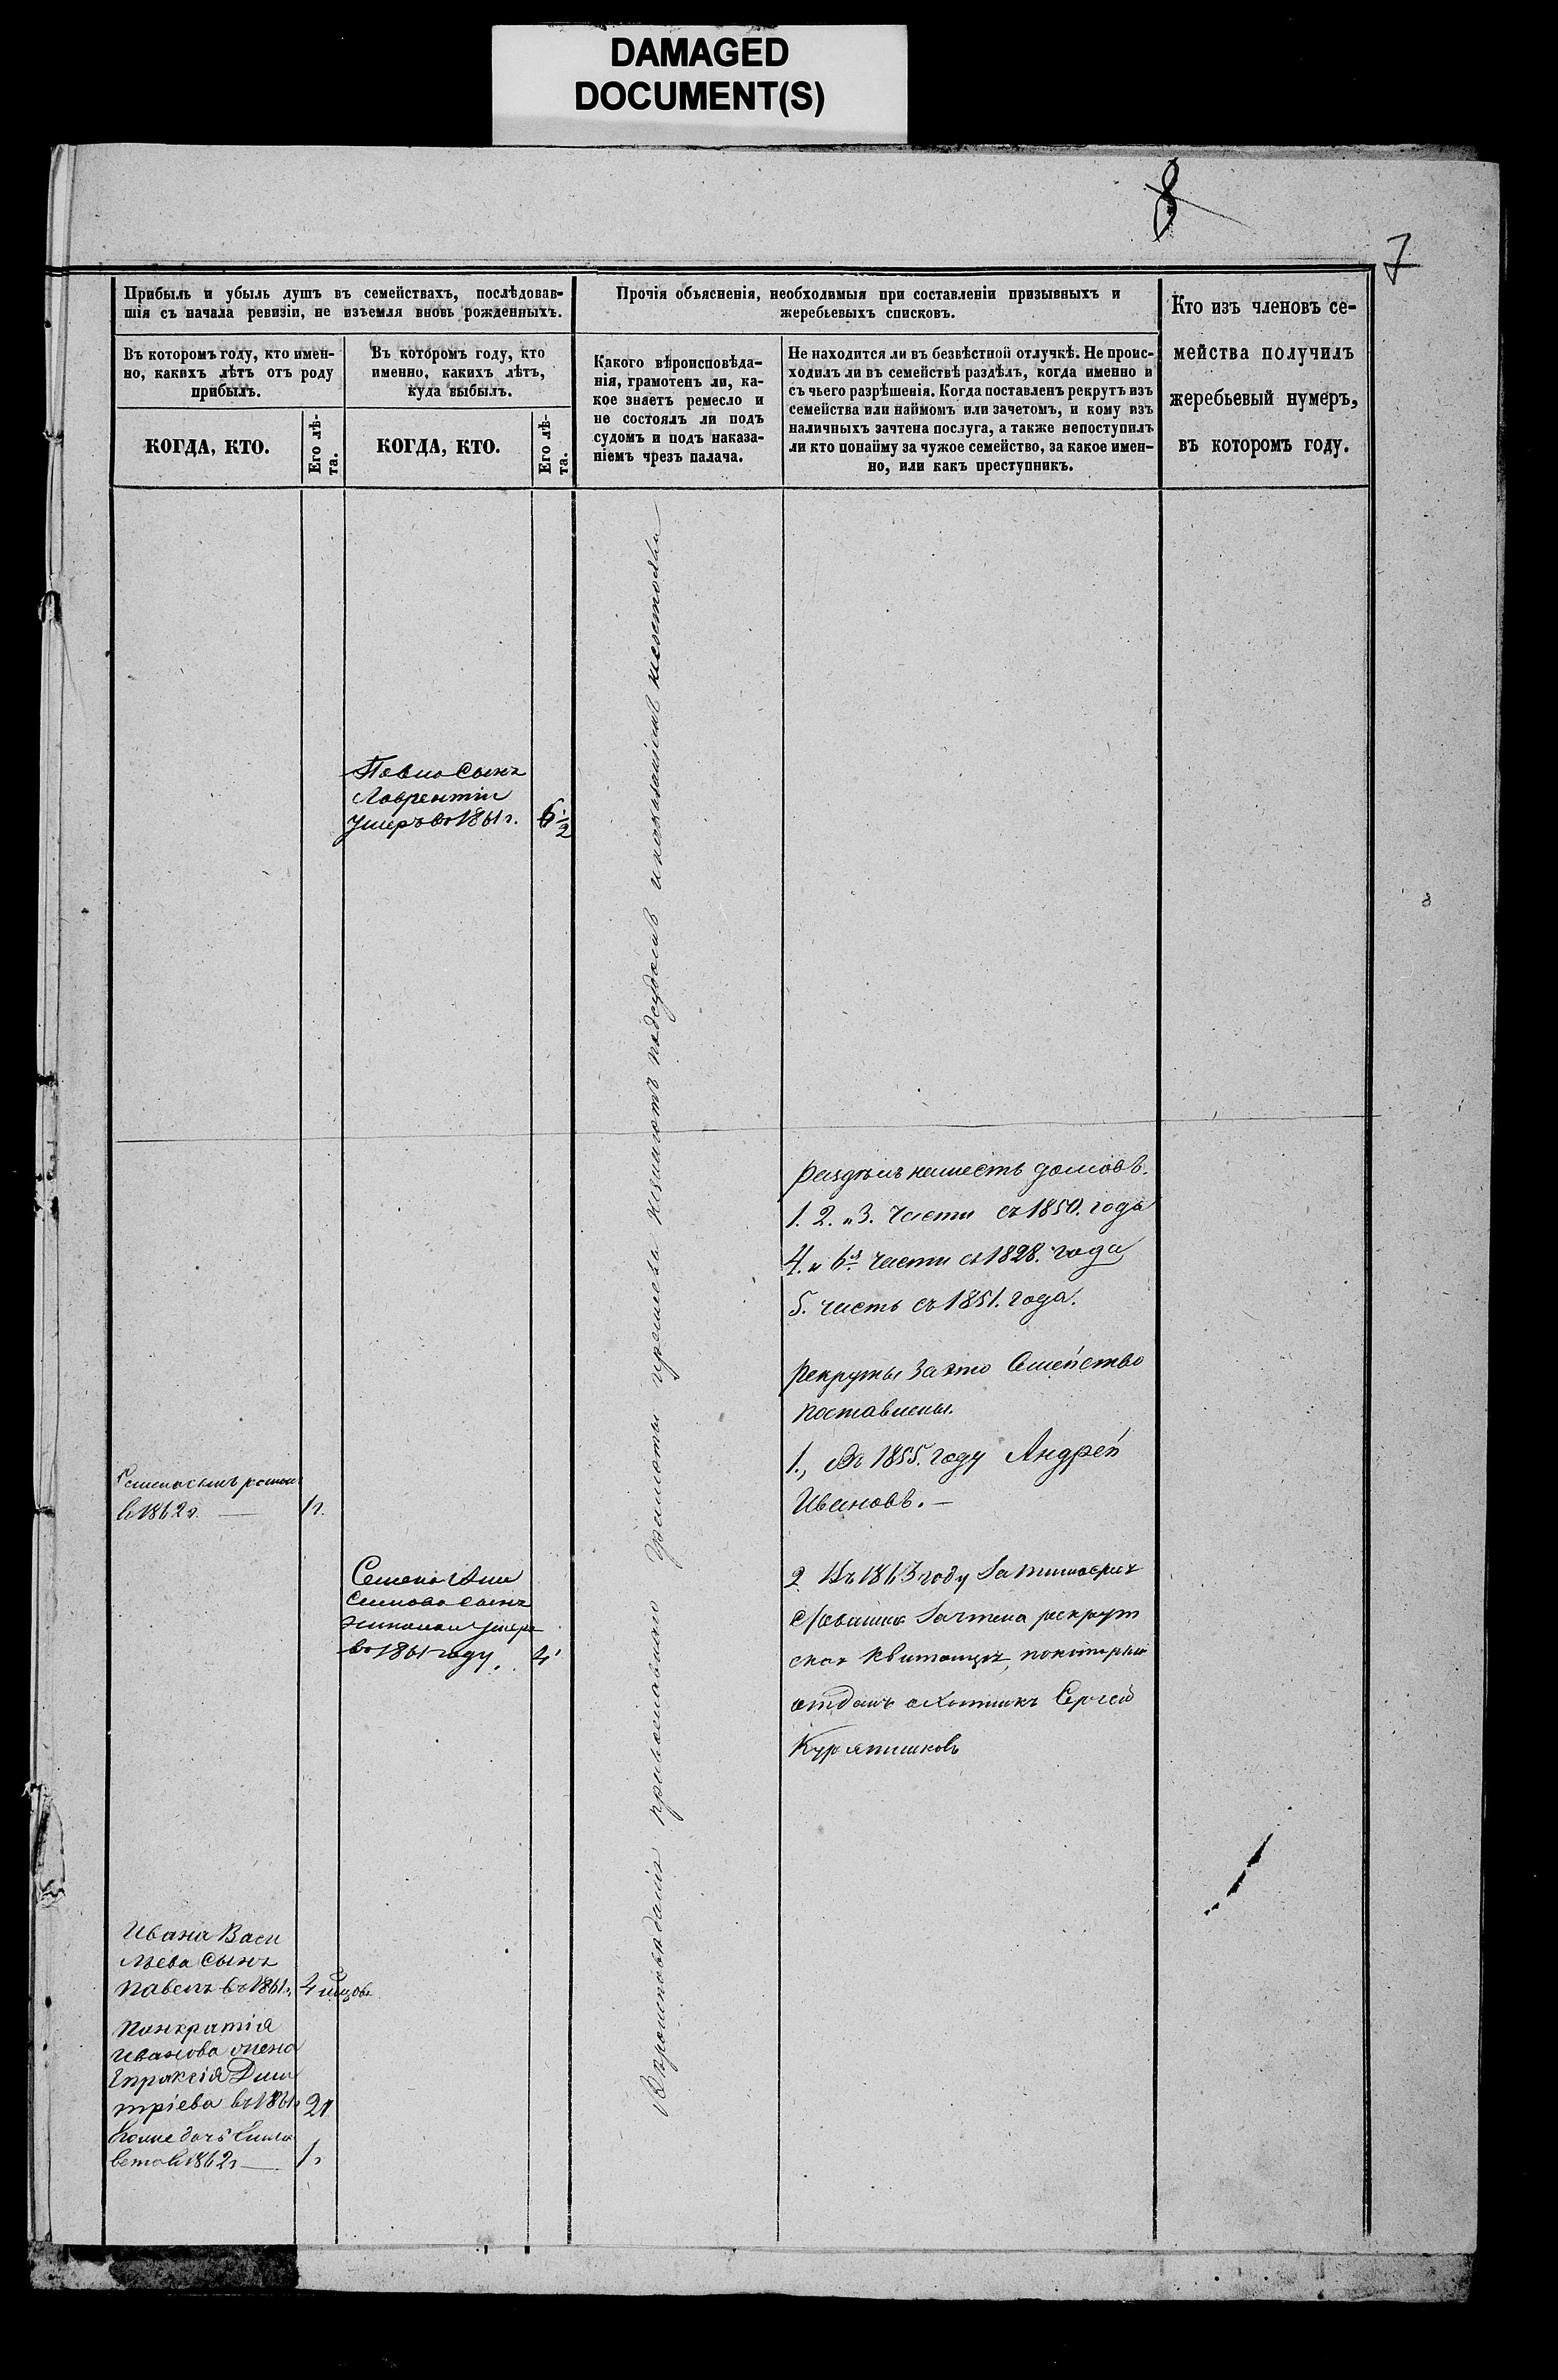 DAMAGED
DOCUMENT(S)
8
7
Прибыль и убыль душъ въ семействахъ, послѣдовав-
шія съ начала ревизіи, не изъемля вновь рожденныхъ.
Прочія объясненія, необходимыя при составленіи призывныхъ и
жеребьевыхъ списковъ.
Кто изъ членовъ се-
мейства получилъ
жеребьевый нумеръ,
въ которомъ году.
Въ которомъ году, кто имен-
но, какихъ лѣтъ отъ роду
прибылъ.
Въ которомъ году, кто
именно, какихъ лѣтъ,
куда выбылъ.
Какого вѣроисповѣда-
нія, грамотенъ ли, ка-
кое знаетъ ремесло и
не состоялъ ли подъ
судомъ и подъ наказа-
ніемъ чрезъ палача.
Не находится ли въ безвѣстной отлучкѣ. Не проис-
ходилъ ли въ семействѣ раздѣлъ, когда именно и
съ чьего разрѣшенія. Когда поставленъ рекрутъ изъ
семейства или наймомъ или зачетомъ, и кому изъ
наличныхъ зачтена послуга, а также непоступилъ
ли кто понайму за чужое семейство, за какое имен-
но, или какъ преступникъ.
КОГДА, КТО.
Его лѣ-
та.
КОГДА, КТО.
Его лѣ-
та.
Павла Сынъ
Лаврентій
умеръ въ 1861 г.
6 1/2
Вѣроисповѣданія православнаго грамоты и ремесла незнаютъ подсудомъ и наказаніемъ несостояли
Раздѣлъ на шесть домовъ.
1. 2. и 3. Части съ 1850. года
4. и 6я части съ 1828. года
5. часть съ 1851. года.
Рекруты за это Семейство
поставлены.
1., Въ 1855. году Андрей
Ивановъ. —
сынъ
в 1862 г. —
1 г.
Семена
сынъ
умеръ
въ 1861 году.
4
2 Въ 1863 году За
зачтена рекрут
ская квитанція, по которой
отданъ охотникъ Сергей
Ивана Васи
льева Сынъ
Павелъ въ 1861 г.
4
Панкратія
Иванова жена
Епраксія Дми
тріева въ 1861 г.
21
дочь Елиза
вета в 1862 г —
1 г